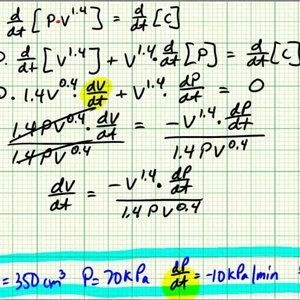 d/dt [P·V^1.4] = d/dt [C]
P· d/dt [V^1.4] + V^1.4 · d/dt [P] = d/dt [C]
P· 1.4V^0.4 · dV/dt + V^1.4 · dP/dt = 0
1.4PV^0.4 · dV/dt / 1.4PV^0.4 = -V^1.4 · dP/dt / 1.4PV^0.4
dV/dt = -V^1.4 · dP/dt / 1.4PV^0.4
= 350 cm³ P = 70 kPa dP/dt = -10 kPa/min